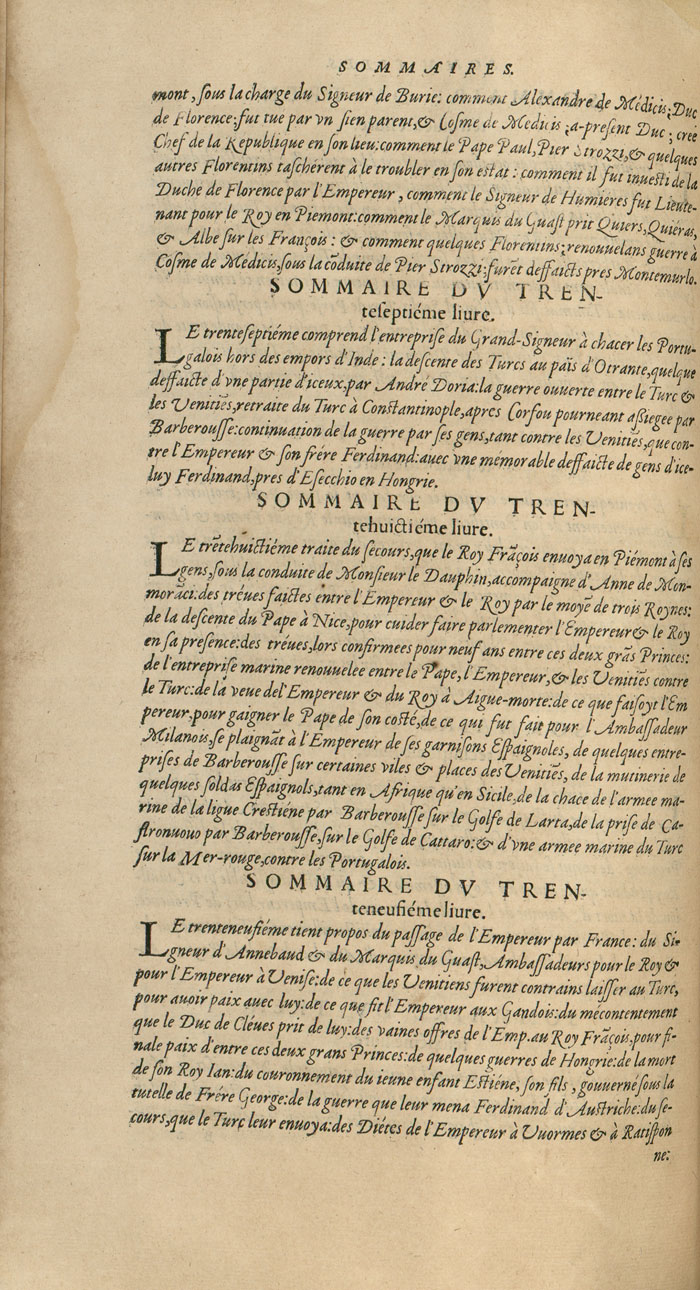 SOMMAIRES.
mont, ſous la charge du Signeur de Burie: comment Alexandre de Médicis, Duc
de Florence, fut tue par vn ſien parent, & Coſme de Medicis, a-preſent Duc, creé
Chef de la Republique en ſon lieu: comment le Pape Paul, Pier Strozzi, & quelques
autres Florentins taſchérent à le troubler en ſon eſtat: comment il fut inueſti de la
Duche de Florence par l'Empereur, comment le Signeur de Humieres fut Lieute-
nant pour le Roy en Piemont: comment le Marquis du Guaſt prit Quiers, Quiéras,
& Albe ſur les François: & comment quelques Florentins, renouuelans guerre à
Coſme de Medicis, ſous la cōduite de Pier Strozzi, furēt deffaicts pres Montemurlo.
SOMMAIRE DV TREN-
teſeptiéme liure.
LE trenteſeptiéme comprend l'entrepriſe du Grand-Signeur à chacer les Portu-
galois hors des empors d'Inde: la deſcente des Turcs au païs d'Otrante, quelque
deffaicte d'vne partie d'iceux, par André Doria: la guerre ouuerte entre le Turc &
les Venitiēs, retraite du Turc à Conſtantinople, apres Corfou pourneant aßiegee par
Barberouſſe: continuation de la guerre par ſes gens, tant contre les Venitiēs, que con-
tre l'Empereur & ſon frére Ferdinand: auec vne memorable deffaicte de gens d'ice-
luy Ferdinand, pres d'Eſecchio en Hongrie.
SOMMAIRE DV TREN-
tehuictiéme liure.
LE trētehuictiéme traite du ſecours, que le Roy Frāçois enuoya en Piémont à ſes
gens, ſous la conduite de Monſieur le Dauphin, accompaigne d'Anne de Mon-
morāci: des tréues faictes entre l'Empereur & le Roy par le moyē de trois Roynes:
de la deſcente du Pape à Nice, pour cuider faire parlementer l'Empereur & le Roy
en ſa preſence: des tréues, lors confirmees pour neuf ans entre ces deux grās Princes:
de l'entrepriſe marine renouuelee entre le Pape, l'Empereur, & les Venitiēs contre
le Turc: de la veue del'Empereur & du Roy à Aigue-morte: de ce que faiſoyt l'Em
pereur, pour gaigner le Pape de ſon coſté, de ce qui fut fait pour l'Ambaſſadeur
Milanois, ſe plaignāt à l'Empereur de ſes garniſons Eſpaignoles, de quelques entre-
priſes de Barberouſſe ſur certaines viles & places des Venitiēs, de la mutinerie de
quelques ſoldas Eſpaignols, tant en Afrique qu'en Sicile, de la chace de l'armee ma-
rine de la ligue Creſtiéne par Barberouſſe ſur le Golfe de Larta, de la priſe de Ca-
ſtronuouo par Barberouſſe, ſur le Golfe de Cattaro: & d'vne armee marine du Turc
ſur la Mer-rouge, contre les Portugalois.
SOMMAIRE DV TREN-
teneufiéme liure.
LE trenteneufiéme tient propos du paſſage de l'Empereur par France: du Si-
gneur d'Annebaud & du Marquis du Guaſt, Ambaſſadeurs pour le Roy &
pour l'Empereur à Veniſe: de ce que les Venitiens furent contrains laiſſer au Turc,
pour auoir paix auec luy: de ce que fit l'Empereur aux Gandois: du mécontentement
que le Duc de Cléues prit de luy: des vaines offres de l'Emp. au Roy Frāçois, pour fi-
nale paix d'entre ces deux grans Princes: de quelques guerres de Hongrie: de la mort
de ſon Roy Ian: du couronnement du ieune enfant Eſtiéne, ſon fils, gouuerné ſous la
tutelle de Frére George: de la guerre que leur mena Ferdinand d'Auſtriche: du ſe-
cours, que le Turc leur enuoya: des Diétes de l'Empereur à Vuormes & à Ratiſpon
ne: